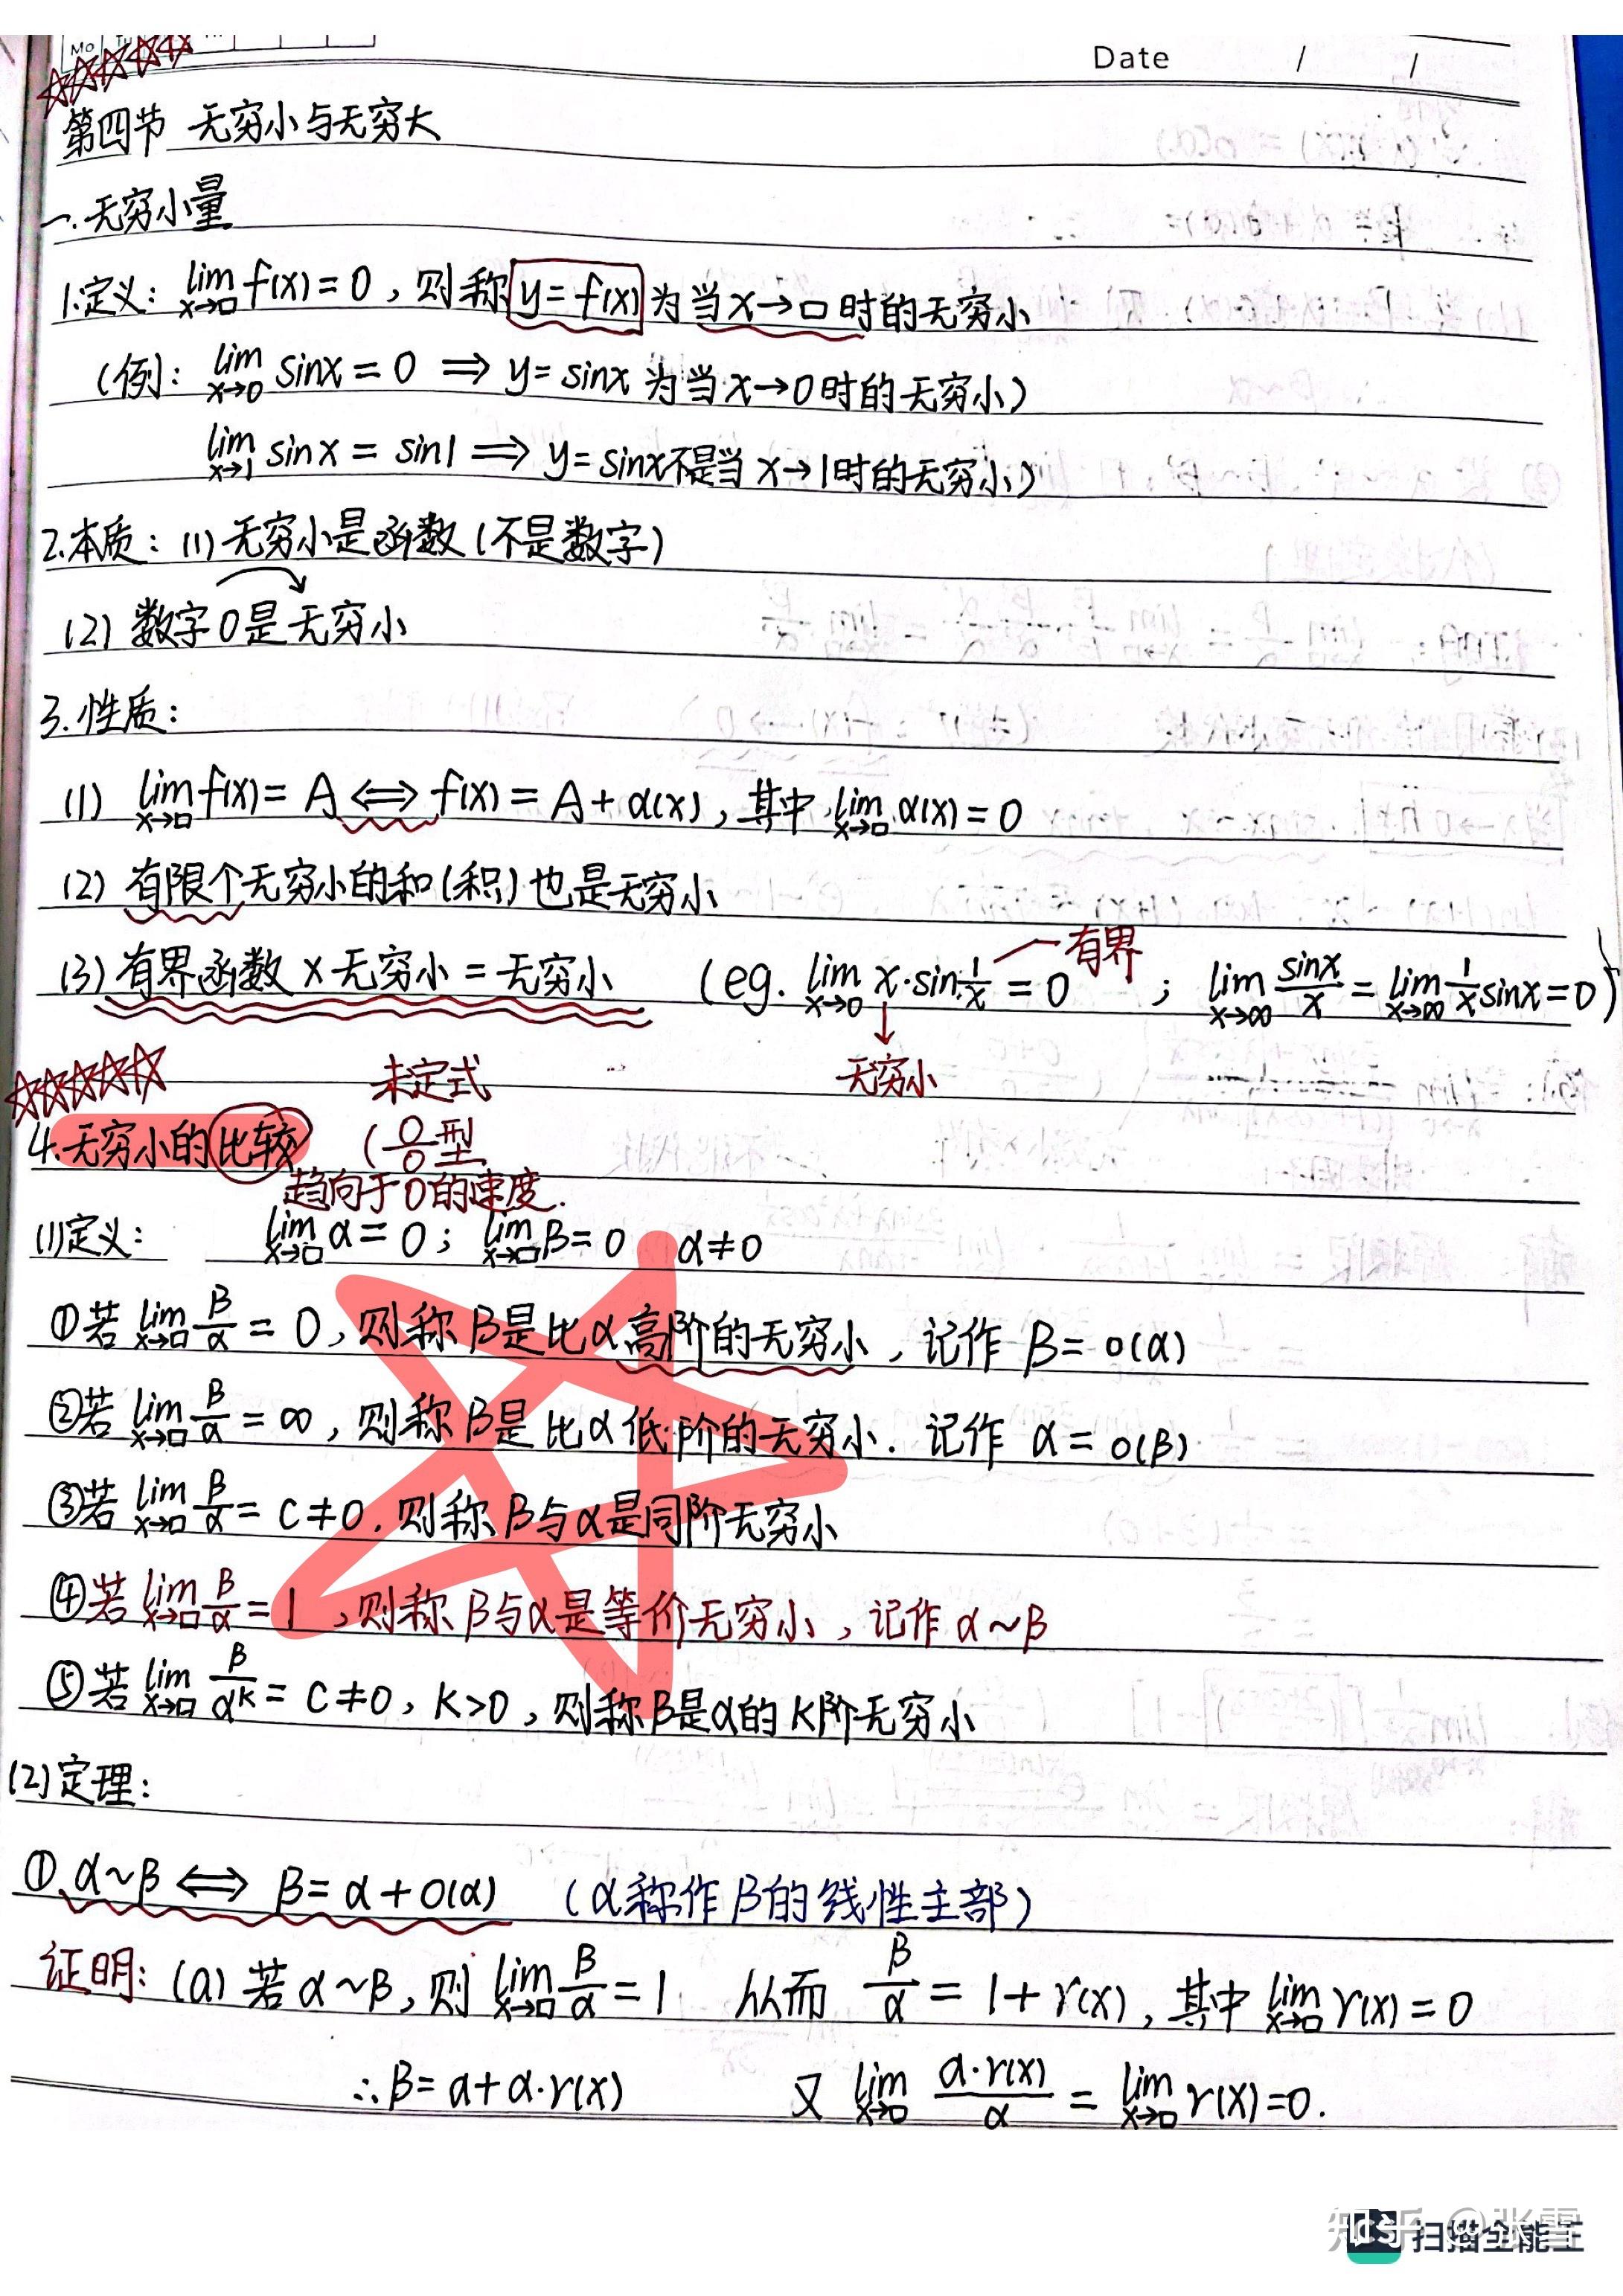 Mo Tu
Date / /
第四节 无穷小与无穷大
一.无穷小量
1.定义: lim_{x→□} f(x)=0, 则称 y=f(x) 为当x→□时的无穷小
(例: lim_{x→0} sinx=0 ⇒ y=sinx 为当x→0时的无穷小)
lim_{x→1} sinx=sin1 ⇒ y=sinx不是当x→1时的无穷小)
2.本质: (1)无穷小是函数(不是数字)
(2) 数字0是无穷小
3.性质:
(1) lim_{x→□} f(x)=A ⇔ f(x)=A+α(x), 其中 lim_{x→□} α(x)=0
(2) 有限个无穷小的和(积)也是无穷小
(3) 有界函数×无穷小=无穷小 (eg. lim_{x→0} x·sin 1/x = 0 ; lim_{x→∞} sinx/x = lim_{x→∞} 1/x sinx=0)
有界
无穷小
未定式
4.无穷小的比较 (0/0型
趋向于0的速度.
(1)定义: lim_{x→□} α=0; lim_{x→□} β=0 α≠0
①若 lim_{x→□} β/α = 0, 则称β是比α高阶的无穷小, 记作 β=o(α)
②若 lim_{x→□} β/α = ∞, 则称β是比α低阶的无穷小. 记作 α=o(β)
③若 lim_{x→□} β/α = C≠0. 则称β与α是同阶无穷小
④若 lim_{x→□} β/α = 1, 则称β与α是等价无穷小, 记作 α~β
⑤若 lim_{x→□} β/α^k = C≠0, k>0, 则称β是α的k阶无穷小
(2)定理:
①α~β ⇔ β=α+o(α) (α称作β的线性主部)
证明: (a) 若α~β, 则 lim_{x→□} β/α = 1 从而 β/α = 1+r(x), 其中 lim_{x→□} r(x)=0
∴β=α+α·r(x) 又 lim_{x→□} α·r(x)/α = lim_{x→□} r(x)=0.
知乎 @张雪
CS 扫描全能王